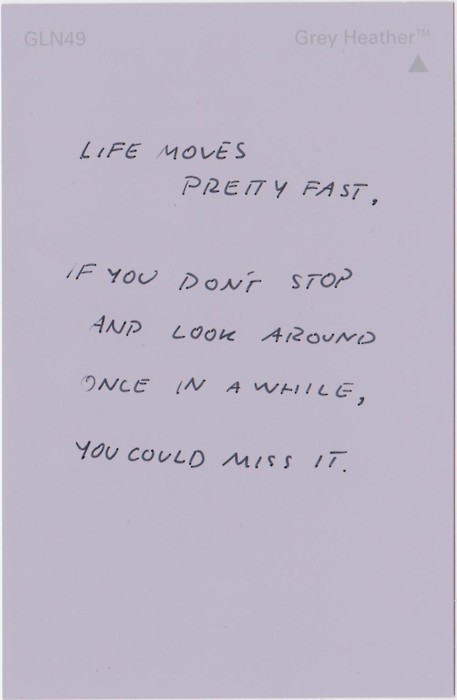 GLN49 Grey Heather™
LIFE MOVES
PRETTY FAST,
IF YOU DON'T STOP
AND LOOK AROUND
ONCE IN A WHILE,
YOU COULD MISS IT.